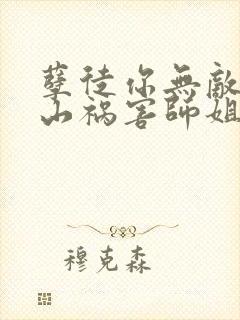 孽徒你無敵
山祸害師姐
穆克森